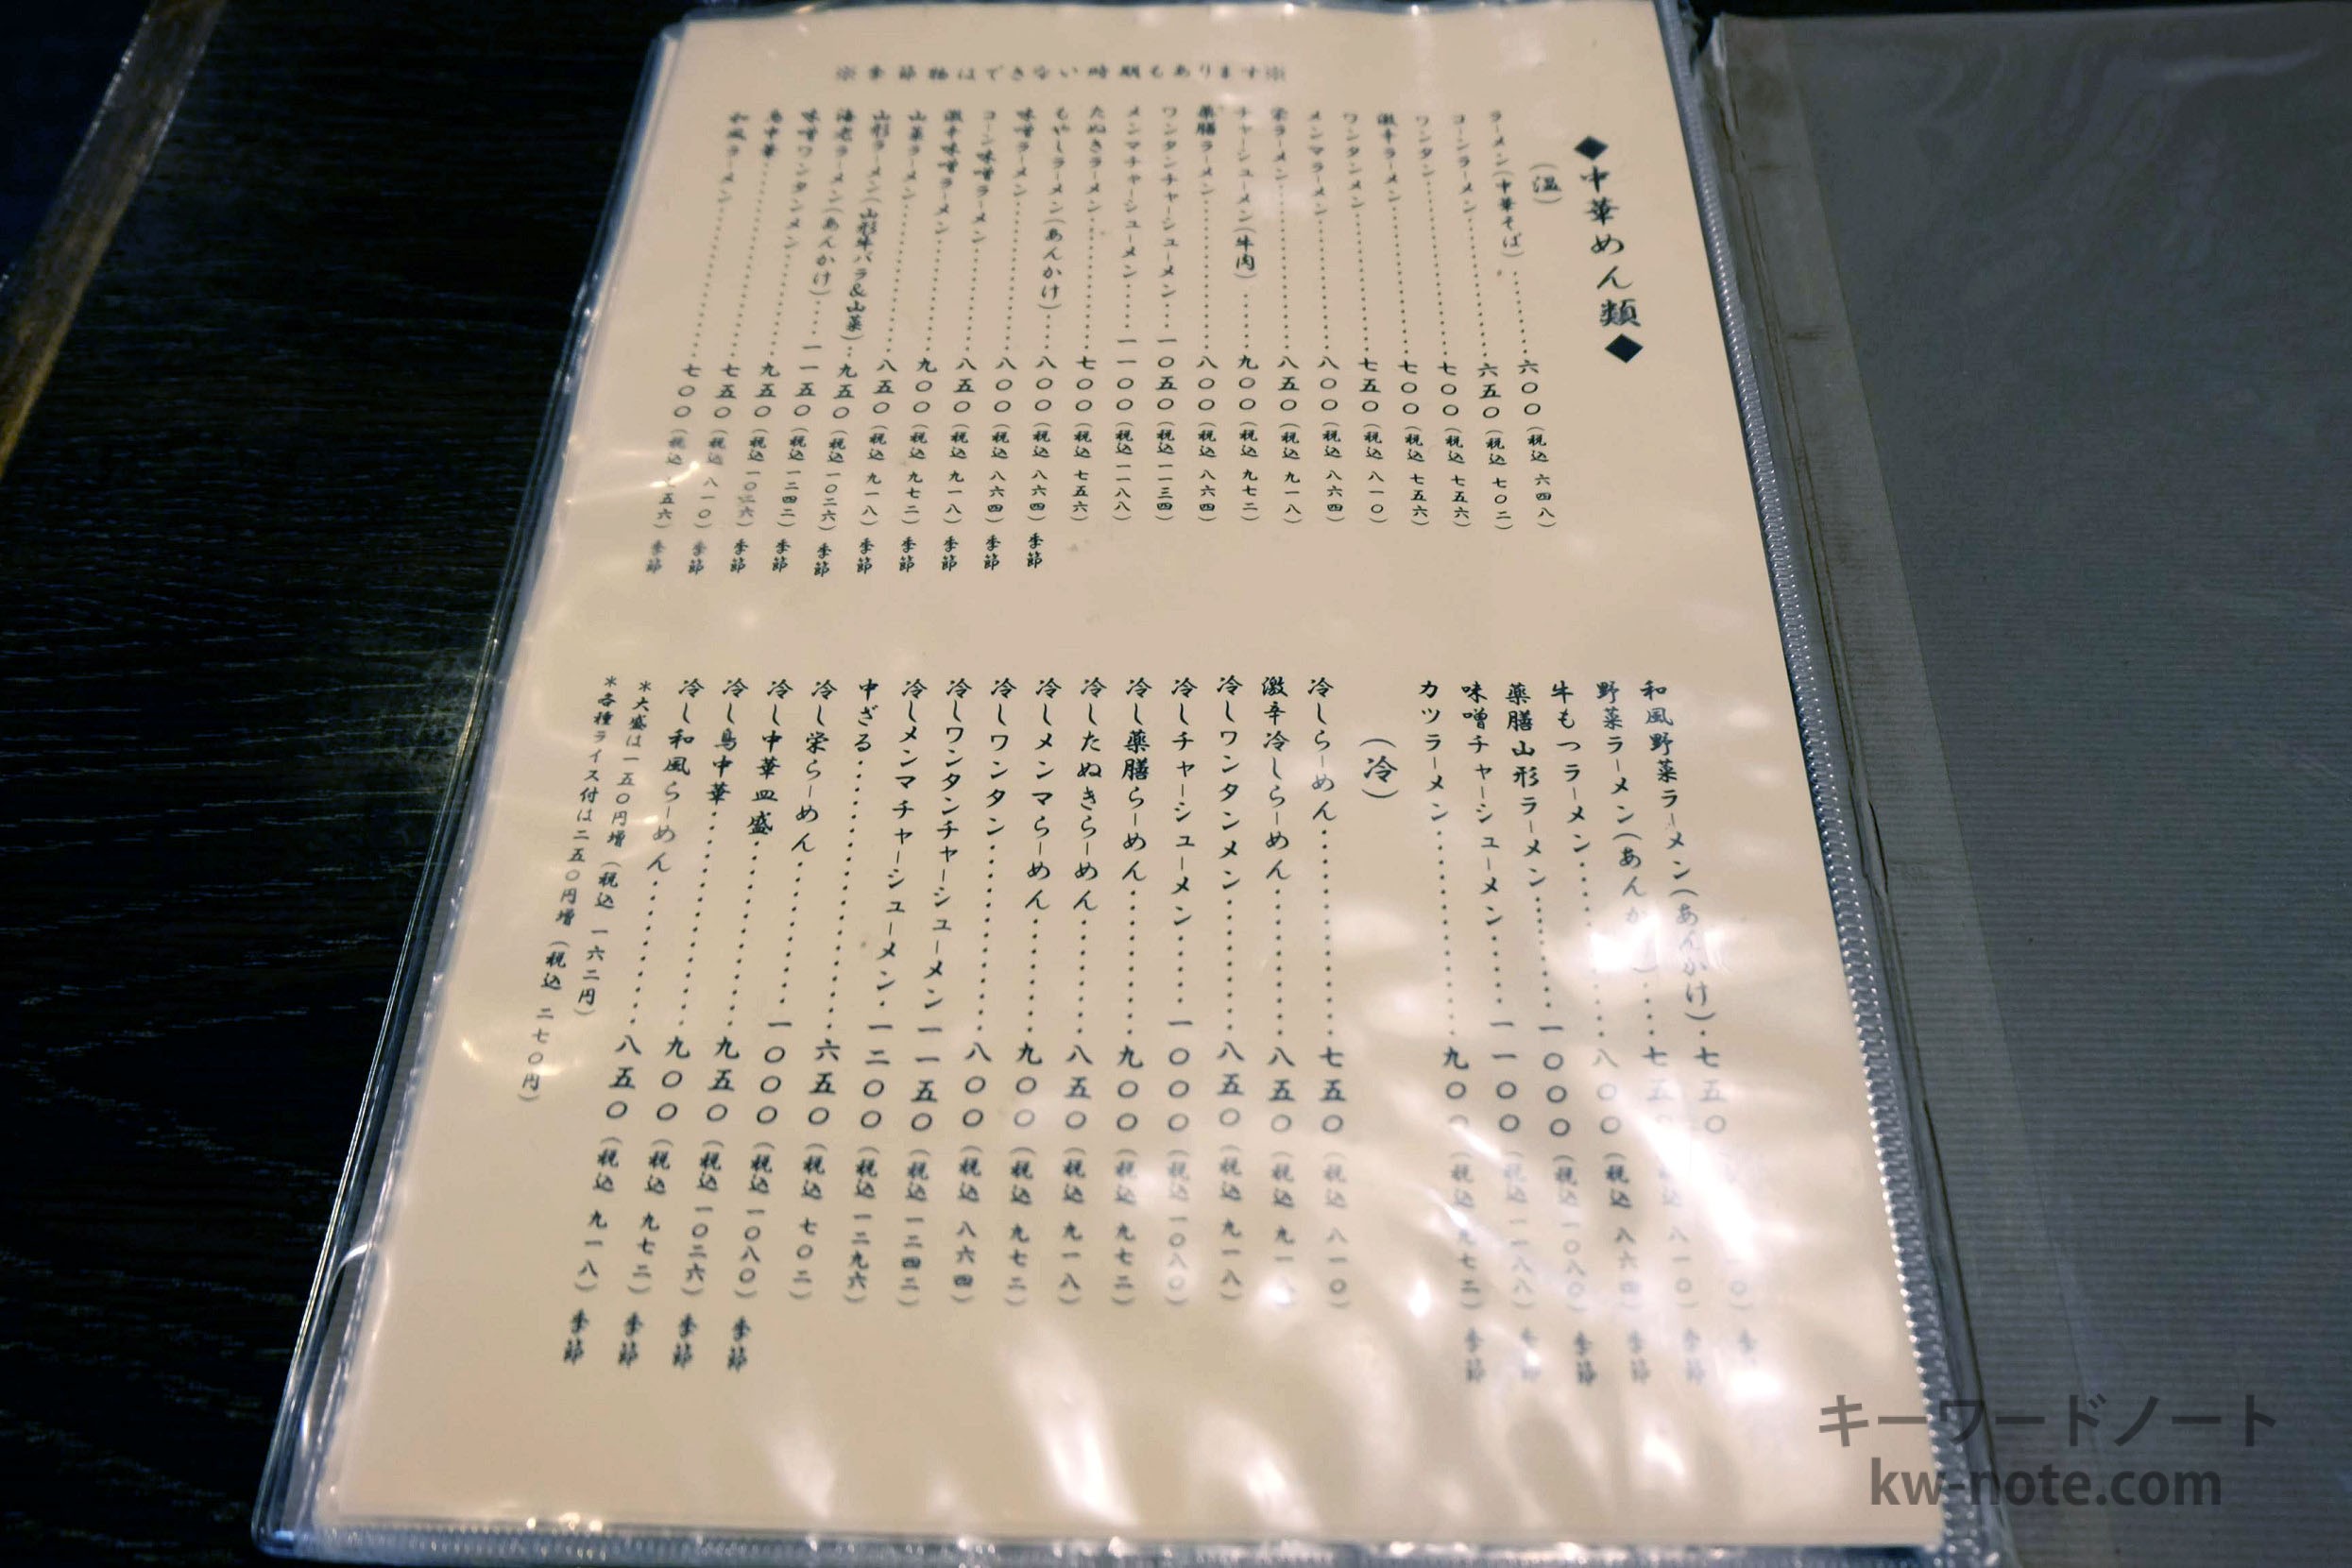 ※季節物はできない時期もあります※
◆中華めん類◆
(温)
ラーメン(中華そば)・・・・・・六〇〇(税込 六四八)
コーンラーメン・・・・・・六五〇(税込 七〇二)
ワンタン・・・・・・七〇〇(税込 七五六)
激辛ラーメン・・・・・・七〇〇(税込 七五六)
ワンタンメン・・・・・・七五〇(税込 八一〇)
メンマラーメン・・・・・・八〇〇(税込 八六四)
栄ラーメン・・・・・・八五〇(税込 九一八)
チャーシューメン(牛肉)・・・・・・九〇〇(税込 九七二)
薬膳ラーメン・・・・・・八〇〇(税込 八六四)
ワンタンチャーシューメン・・・一〇五〇(税込 一一三四)
メンマチャーシューメン・・・・・一一〇〇(税込 一一八八)
たぬきラーメン・・・・・・七〇〇(税込 七五六)
もやしラーメン(あんかけ)・・・・八〇〇(税込 八六四)季節
味噌ラーメン・・・・・・八〇〇(税込 八六四)季節
コーン味噌ラーメン・・・・・・八五〇(税込 九一八)季節
激辛味噌ラーメン・・・・・・九〇〇(税込 九七二)季節
山菜ラーメン・・・・・・八五〇(税込 九一八)季節
山形ラーメン(山形牛バラ&山菜)・・九五〇(税込 一〇二六)季節
海老ラーメン(あんかけ)・・・・一一五〇(税込 一二四二)季節
味噌ワンタンメン・・・・・・九五〇(税込 一〇二六)季節
鳥中華・・・・・・七五〇(税込 八一〇)季節
和風ラーメン・・・・・・七〇〇(税込 五六)季節
和風野菜ラーメン(あんかけ)・七五〇 季
野菜ラーメン(あんか)・・・七五〇 八一〇)季節
牛もつラーメン・・・・・・八〇〇(税込 八六四)季節
薬膳山形ラーメン・・・・・・一〇〇〇(税込 一〇八〇)季節
味噌チャーシューメン・・・・・一一〇〇(税込 一一八八)季節
カツラーメン・・・・・・九〇〇(税込 九七二)季節
(冷)
冷しらーめん・・・・・・七五〇(税込 八一〇)
激辛冷しらーめん・・・・・・八五〇(税込 九一八)
冷しワンタンメン・・・・・・八五〇(税込 九一八)
冷しチャーシューメン・・・・・一〇〇〇(税込 一〇八〇)
冷し薬膳らーめん・・・・・・九〇〇(税込 九七二)
冷したぬきらーめん・・・・・・八五〇(税込 九一八)
冷しメンマらーめん・・・・・・九〇〇(税込 九七二)
冷しワンタン・・・・・・八〇〇(税込 八六四)
冷しワンタンチャーシューメン一一五〇(税込 一二四二)
冷しメンマチャーシューメン・一二〇〇(税込 一二九六)
中ざる・・・・・・六五〇(税込 七〇二)
冷し栄らーめん・・・・・・一〇〇〇(税込 一〇八〇)季節
冷し中華皿盛・・・・・・九五〇(税込 一〇二六)季節
冷し鳥中華・・・・・・九〇〇(税込 九七二)季節
冷し和風らーめん・・・・・・八五〇(税込 九一八)季節
*大盛は一五〇円増(税込 一六二円)
*各種ライス付は二五〇円増(税込 二七〇円)
キーワードノート
kw-note.com